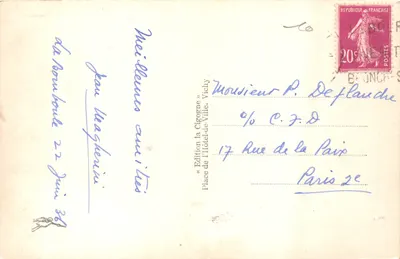 Meilleures amitiés
Jean Magherini
La Bourboule 22 Juin 38
« Edition la Cigogne »
Place de l'Hôtel-de-Ville, Vichy
REPUBLIQUE FRANÇAISE
20c
BRONCH
Monsieur P. Deflandre
c/o C.F.D
17 Rue de la Paix
Paris 2e